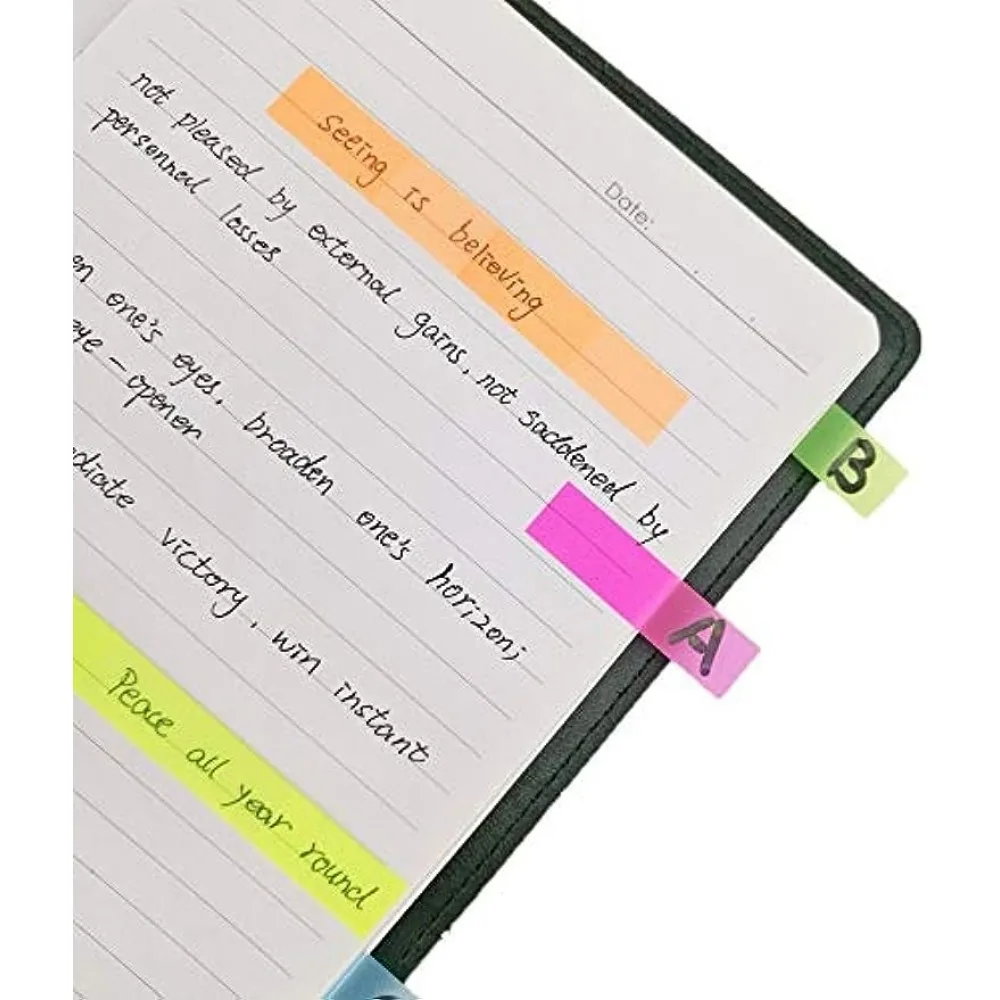 Date:
Seeing is believing
not pleased by external gains, not saddened by
personnal losses
one's eyes, broaden one's horizon;
eye-opener
victory, win instant
Peace all year round
B
A